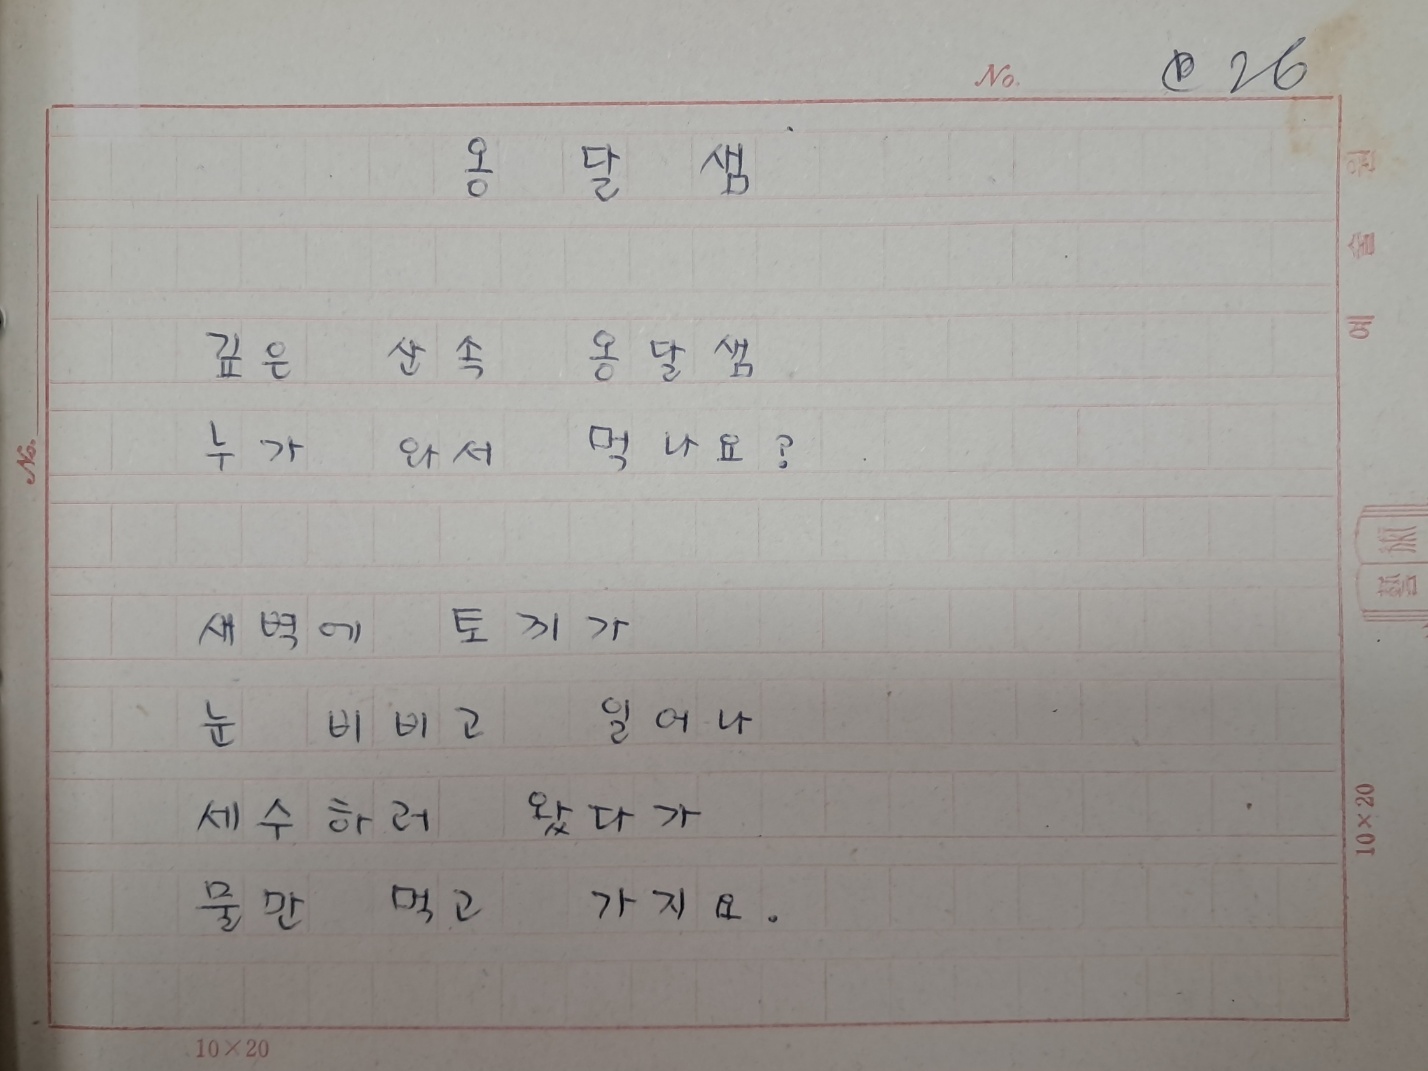 No. 26
옹달샘
깊은 산속 옹달샘
누가 와서 먹나요?
새벽에 토끼가
눈 비비고 일어나
세수하러 왔다가
물만 먹고 가지요.
10×20
No.
10×20